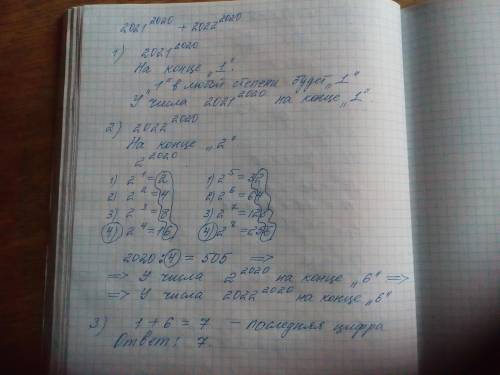 2021²⁰²⁰ + 2022²⁰²⁰
1) 2021²⁰²⁰
На конце „1“.
„1“ в любой степени будет „1“
У числа 2021²⁰²⁰ на конце „1“.
2) 2022²⁰²⁰
На конце „2“
2²⁰²⁰
1) 2¹ = 2 1) 2⁵ = 32
2) 2² = 4 2) 2⁶ = 64
3) 2³ = 8 3) 2⁷ = 128
4) 2⁴ = 16 4) 2⁸ = 256
2020 : 4 = 505 =>
=> У числа 2²⁰²⁰ на конце „6“ =>
=> У числа 2022²⁰²⁰ на конце „6“
3) 1 + 6 = 7 – последняя цифра
Ответ: 7.